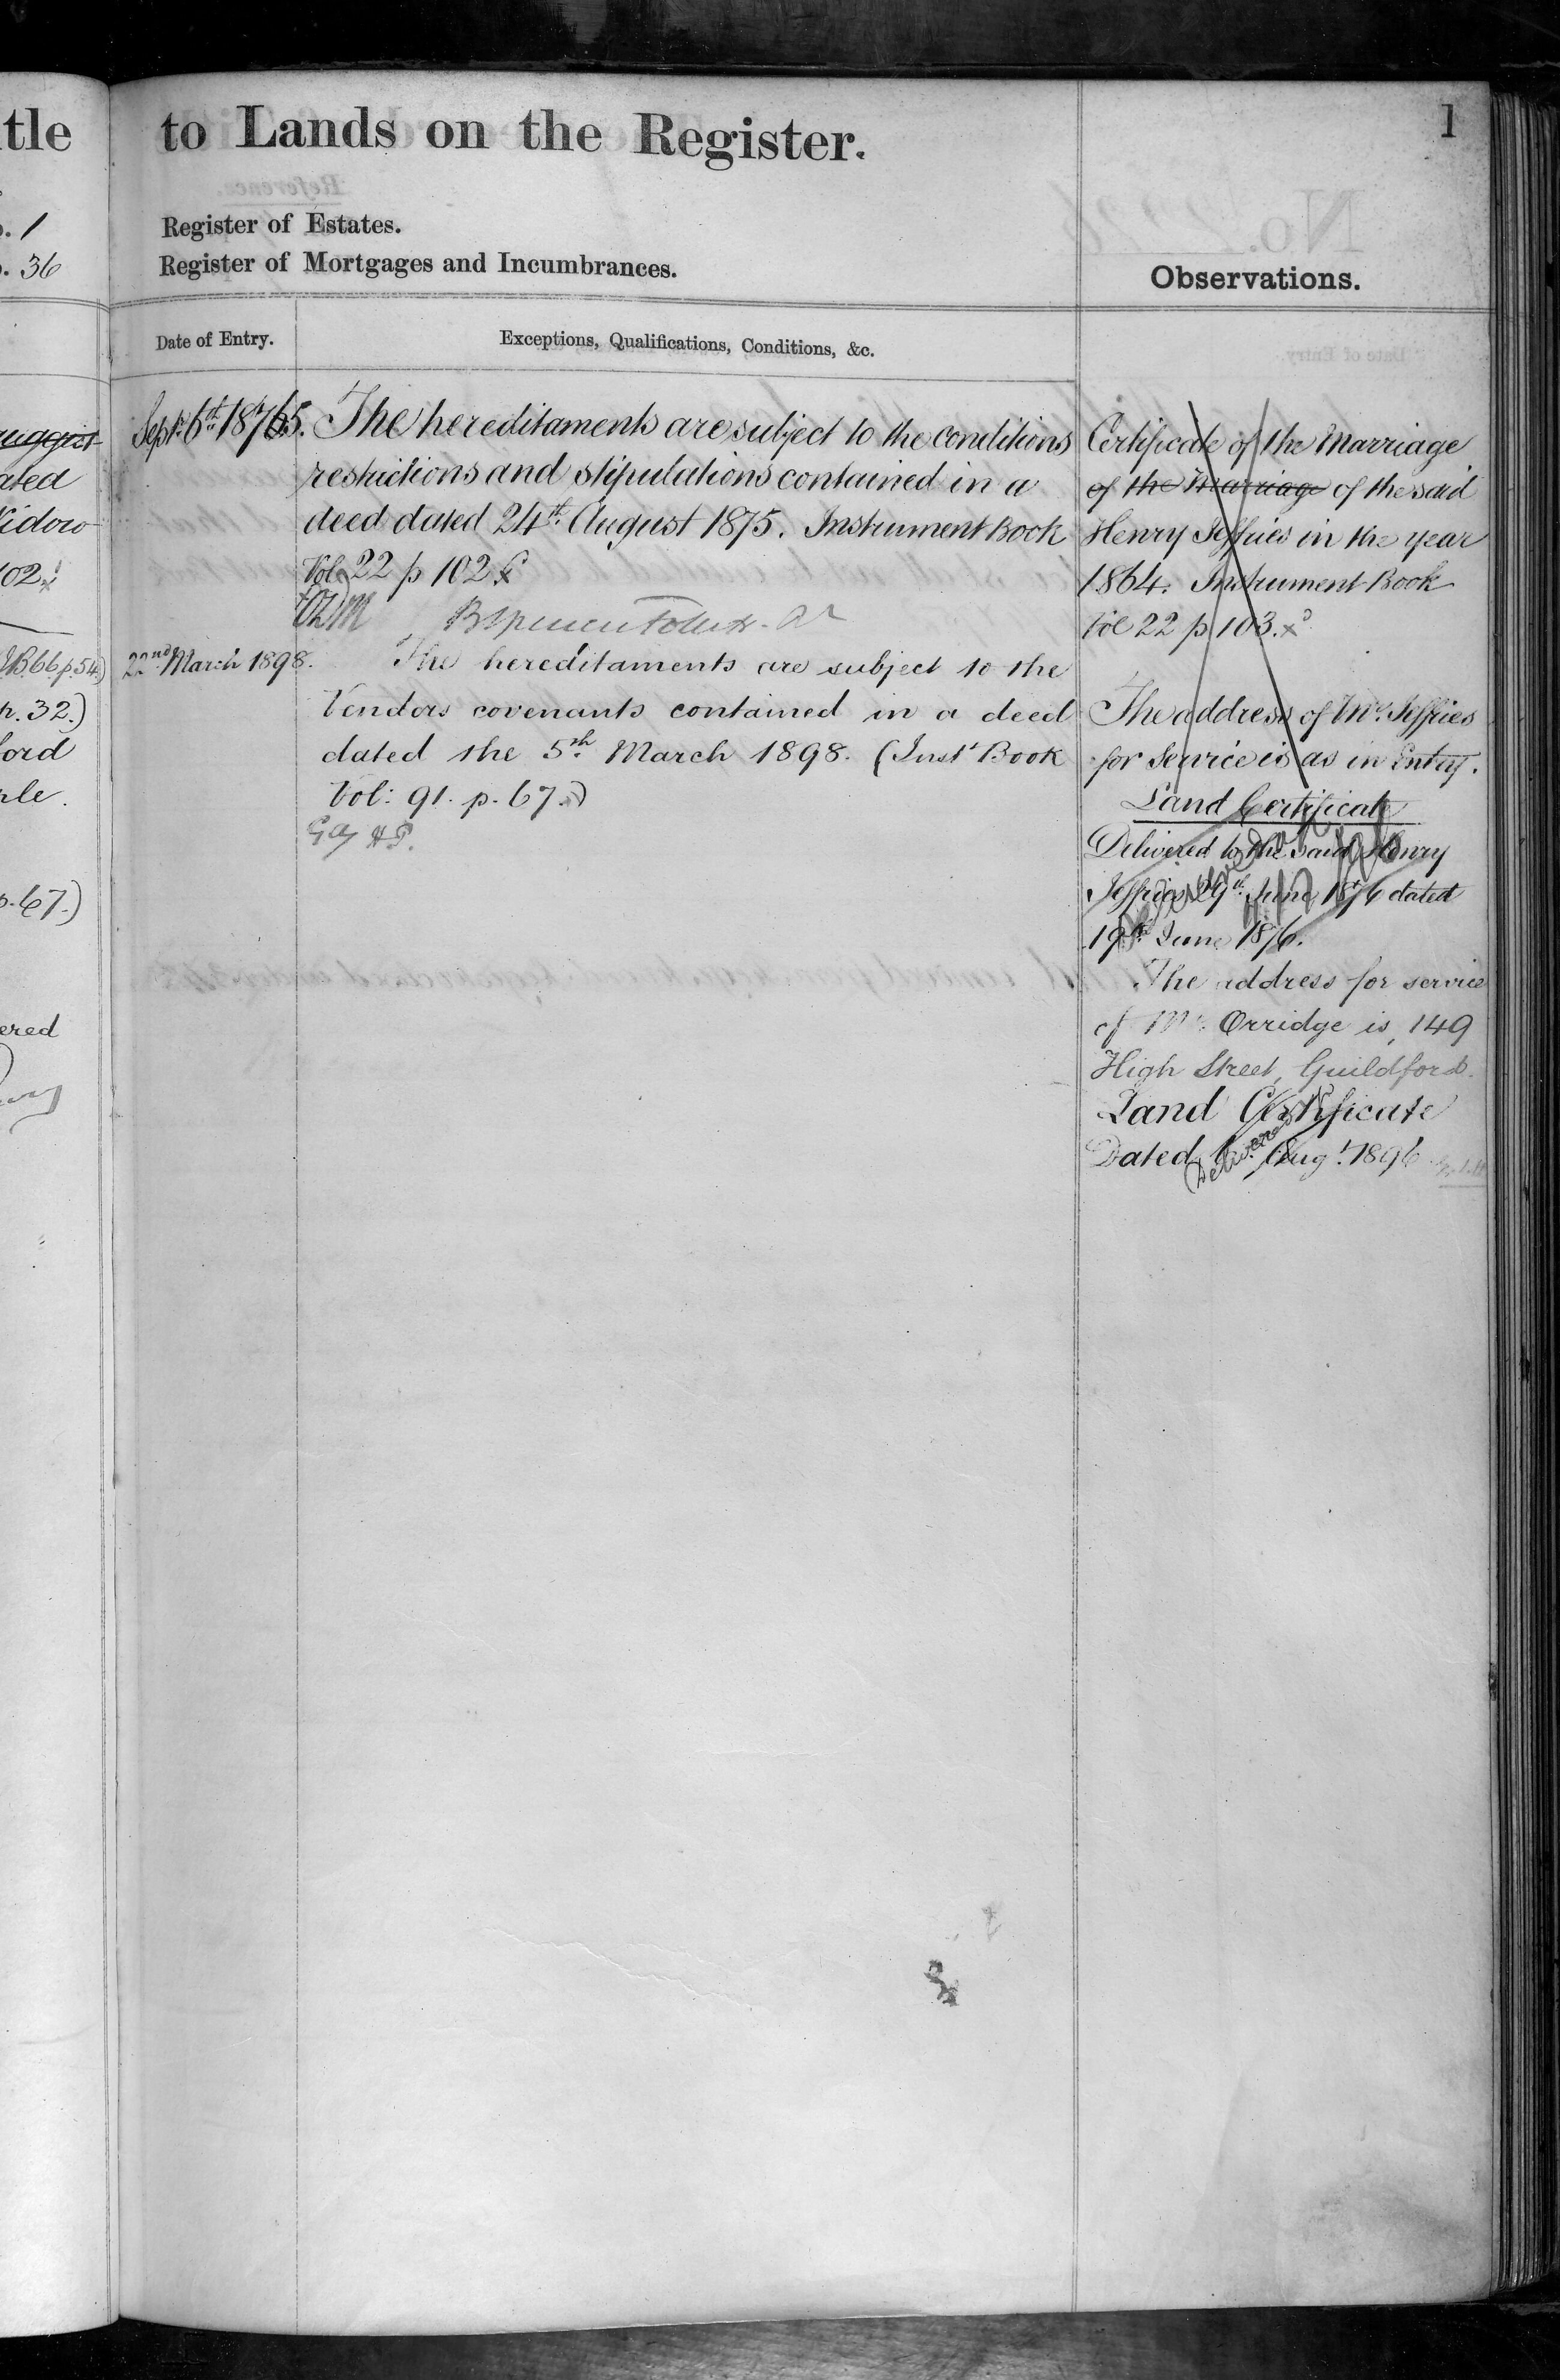 tle
. 1
. 36
ated
idow
102.
I.B. 66 p. 54.)
p. 32.)
ford
ple.
p. 67.)
ered
to Lands on the Register.
1
Register of Estates.
Register of Mortgages and Incumbrances.
Observations.
Date of Entry.
Exceptions, Qualifications, Conditions, &c.
Sept. 6th 1875.
The hereditaments are subject to the conditions
restrictions and stipulations contained in a
deed dated 24th August 1875. Instrument Book
Vol 22 p 102
22nd March 1898.
The hereditaments are subject to the
Vendors covenants contained in a deed
dated the 5th March 1898. (Inst Book
Vol: 91. p. 67.)
Certificate of the Marriage
of the Marriage of the said
Henry Jeffries in the year
1864. Instrument Book
Vol 22 p 103.
The address of Mr. Jeffries
for Service is as in Entry.
Land Certificate
Delivered to the said Henry
Jeffries 29th June 1876 dated
19th June 1876.
The address for service
of Mr. Orridge is, 149
High Street, Guildford.
Land Certificate
Dated Augt. 1896
Delivered